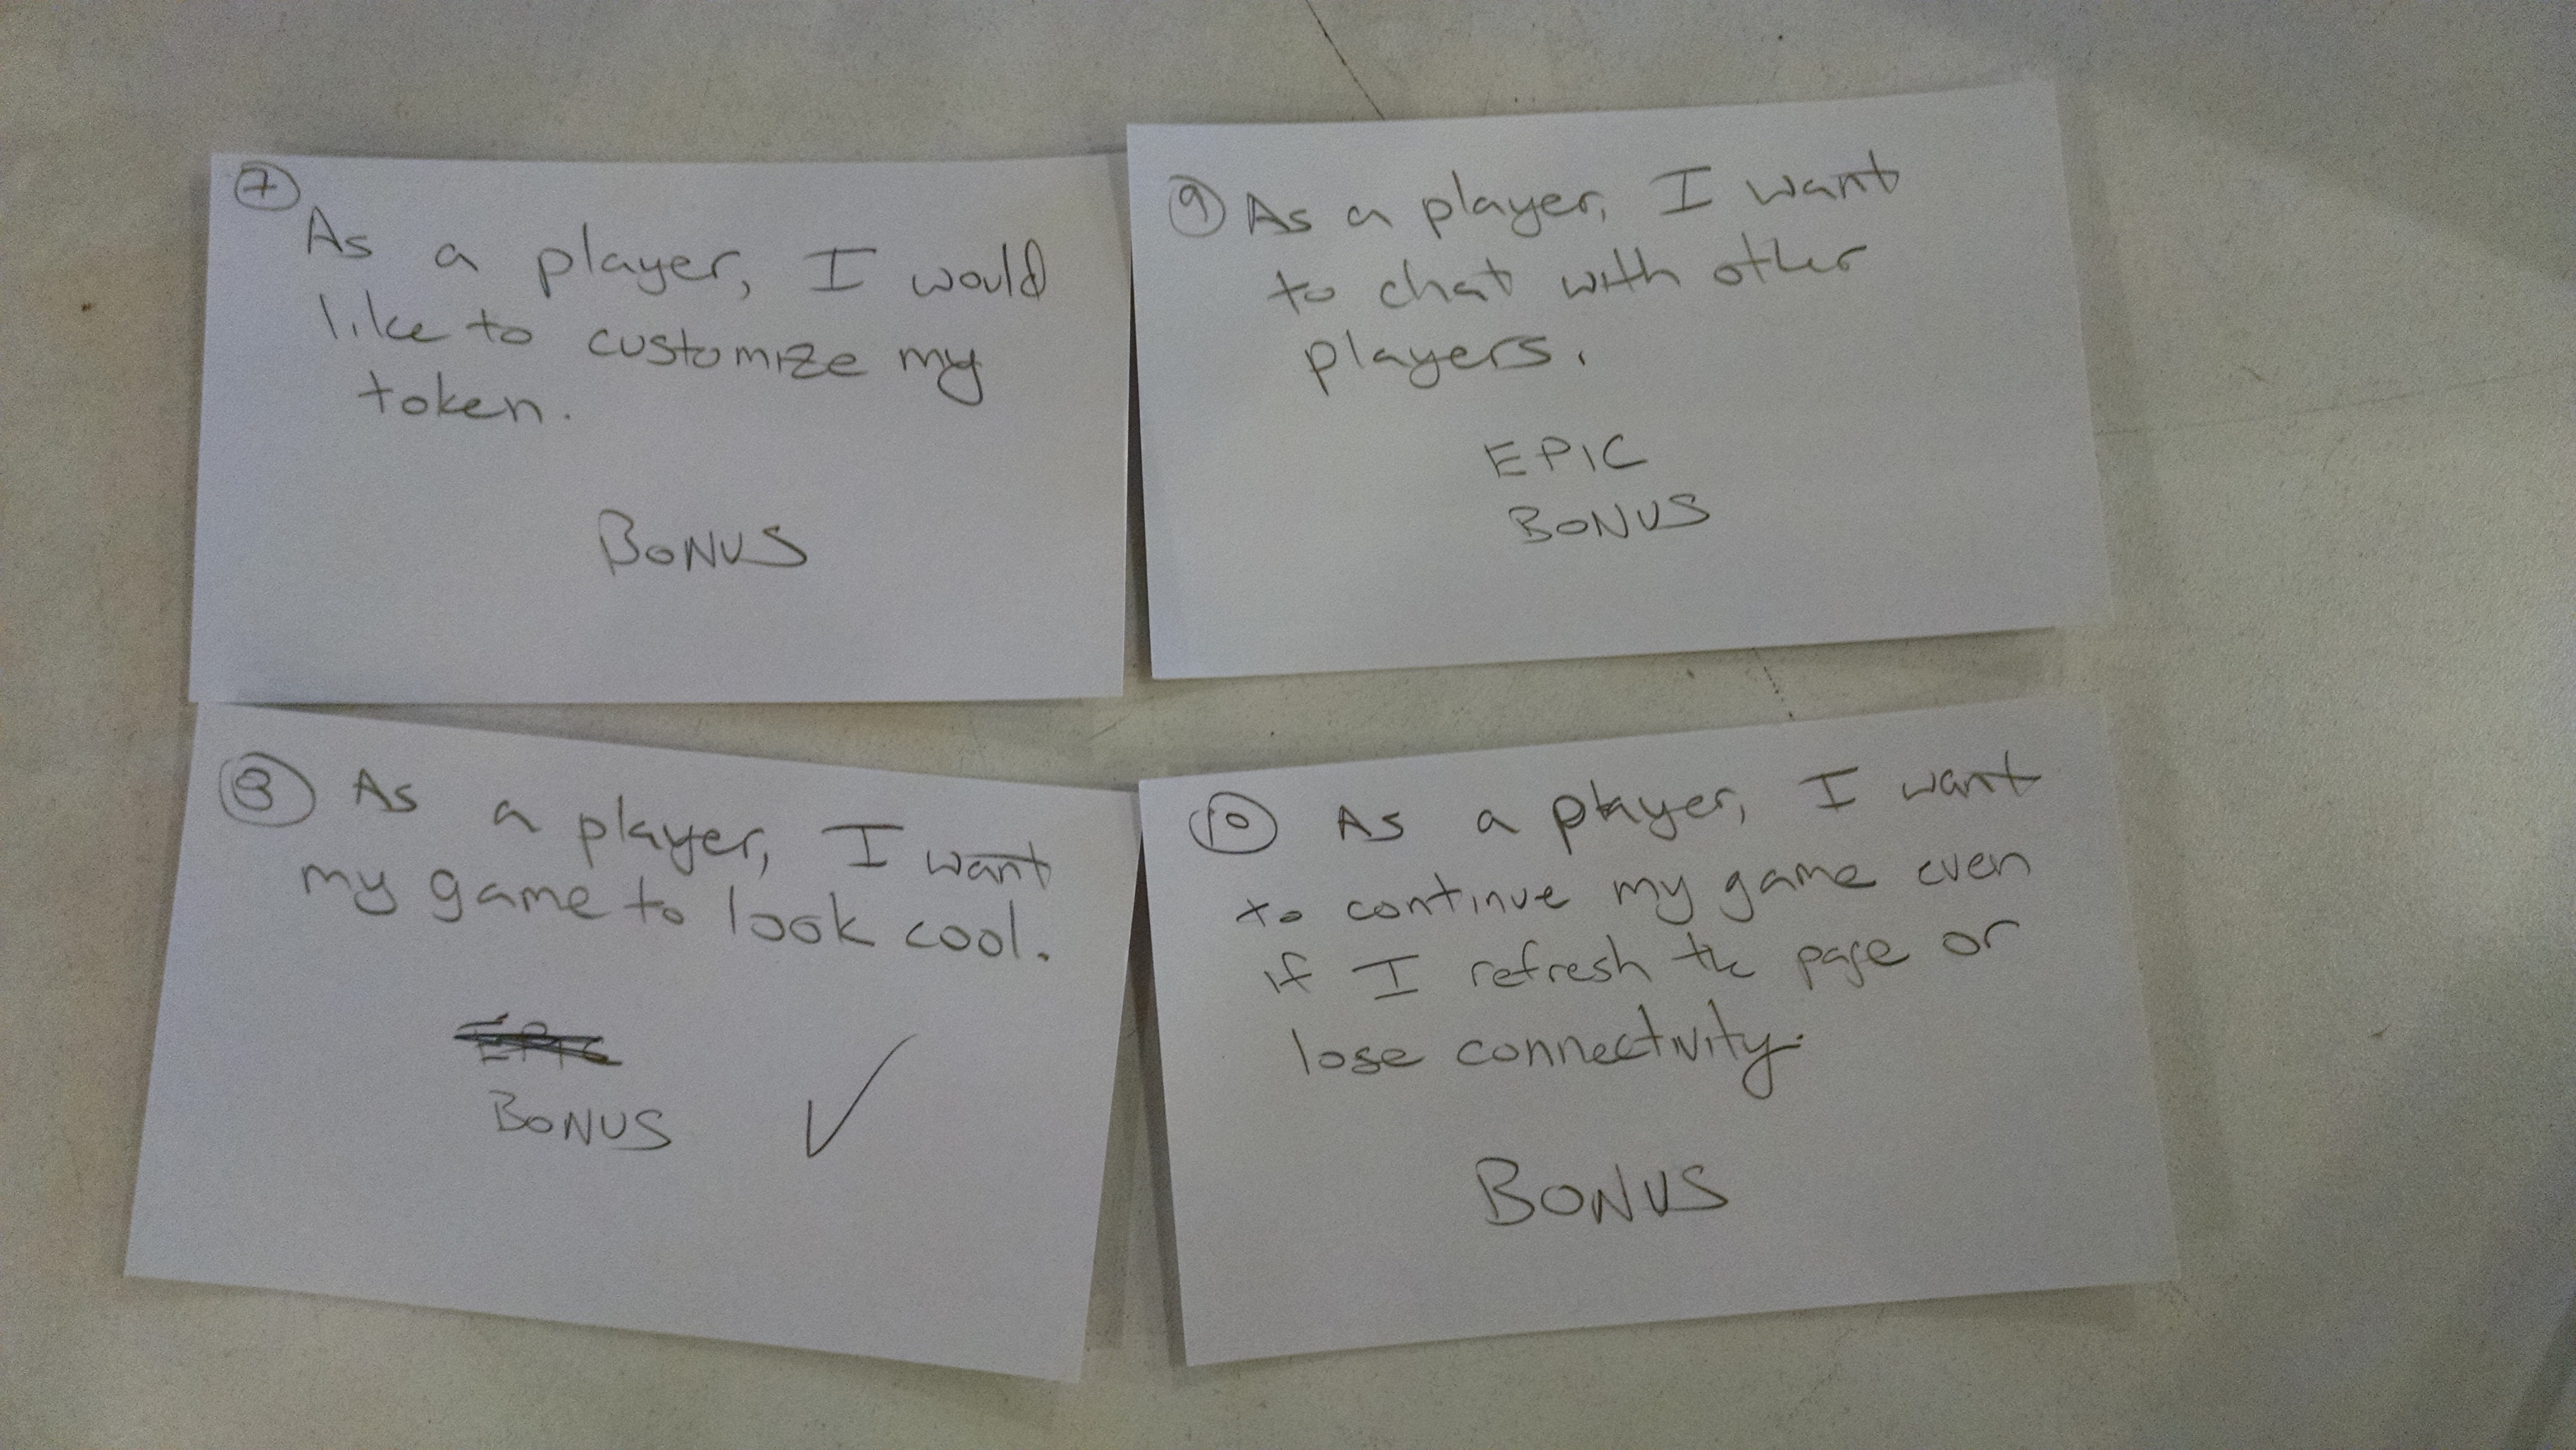 7
As a player, I would
like to customize my
token.
BONUS
8 As a player, I want
my game to look cool.
EPIC
BONUS ✓
9 As a player, I want
to chat with other
players.
EPIC
BONUS
10 As a player, I want
to continue my game even
if I refresh the page or
lose connectivity.
BONUS